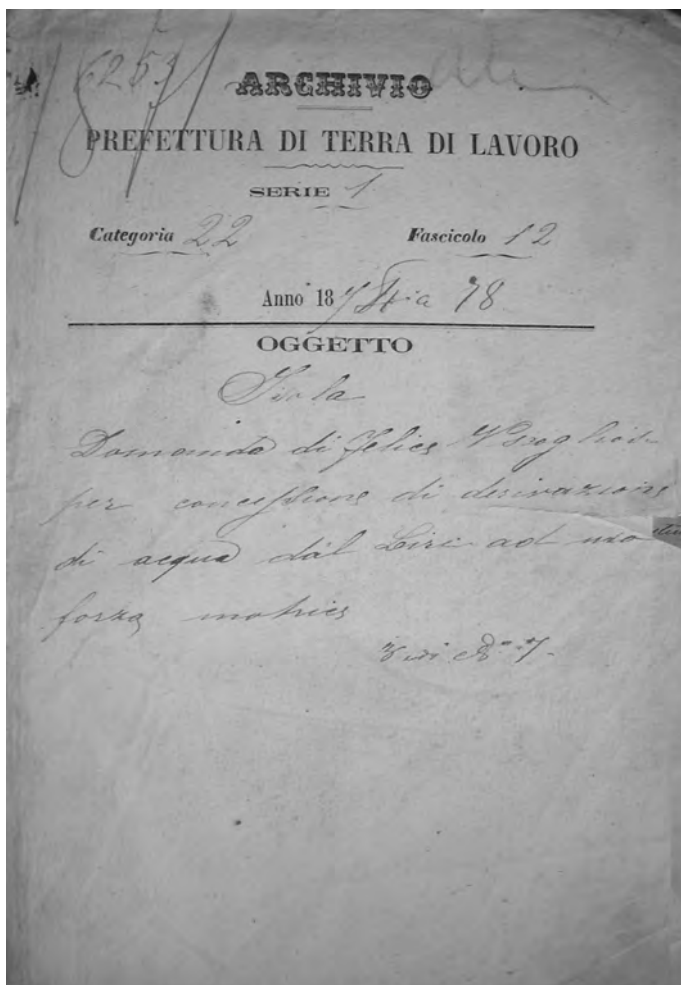 6253
ARCHIVIO
PREFETTURA DI TERRA DI LAVORO
SERIE 1
Categoria 22 Fascicolo 12
Anno 187 78
OGGETTO
Isola
Domanda di Felice
per concessione di derivazione
di acqua dal Liri ad uso
forza motrice